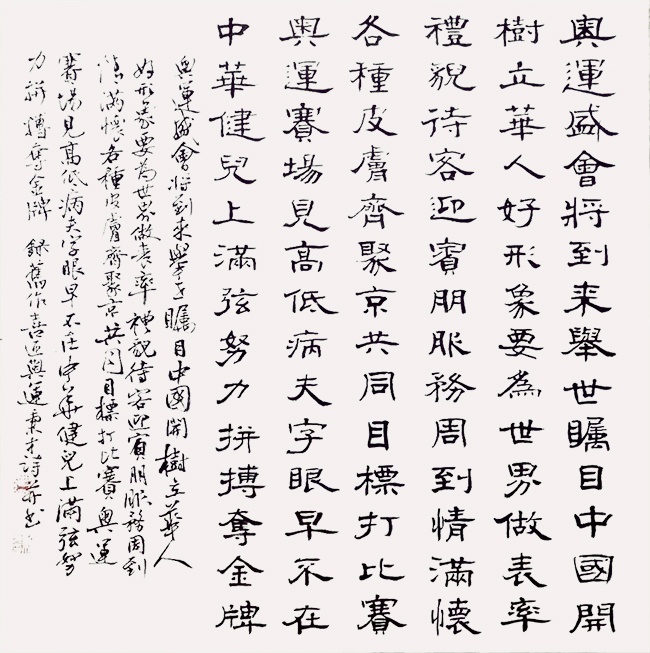 奧運盛會將到来舉世矚目中國開
樹立華人好形象要為世界做表率
禮貌待客迎賓朋服務周到情滿懷
各種皮膚齊聚京共同目標打比賽
奥運賽場見高低病夫字眼早不在
中華健兒上滿弦努力拼搏奪金牌
奥運盛會將到来舉世矚目中國開樹立華人
好形象要為世界做表率禮貌待客迎賓朋服務周到
情滿懷各種皮膚齊聚京共同目標打比賽奥運
賽場見高低病夫字眼早不在中華健兒上滿弦努
力拼搏奪金牌 録舊作喜迎奥運詩并書